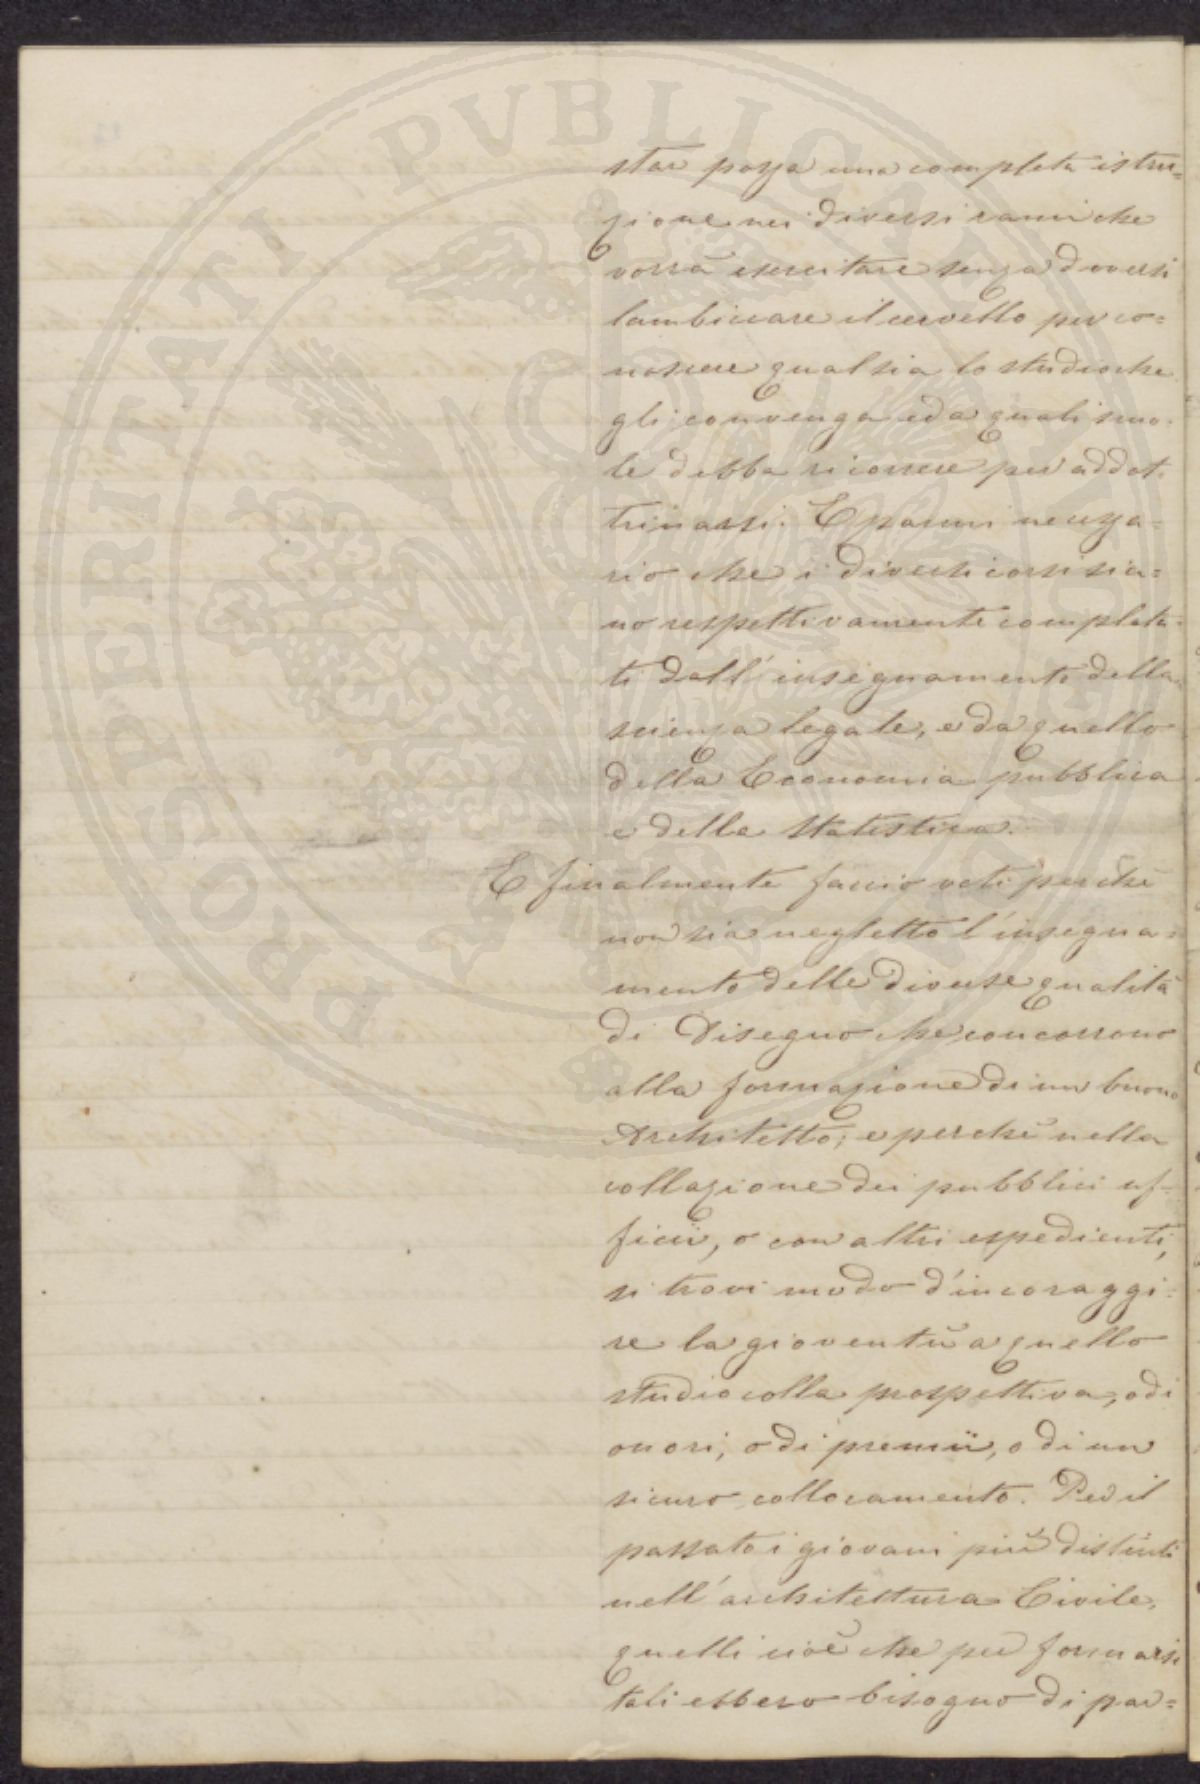 star possa una completa istru=
zione nei diversi rami che
vorrà esercitare senza doversi
lambiccare il cervello per co=
noscere qual sia lo studio che
gli convenga ed a quali scuo=
le debba ricorrere per addot=
trinarsi. E parmi necessa=
rio che i diversi corsi sia=
no respettivamente completa=
ti dall'insegnamento della
scienza legale, e da quello
della Economia pubblica
e della Statistica.
E finalmente faccio voti perchè
non sia negletto l'insegna=
mento delle diverse qualità
di Disegno che concorrono
alla formazione di un buono
Architetto; e perchè nella
collazione dei pubblici uf=
ficii, o con altri espedienti,
si trovi modo d'incoraggi=
re la gioventù a quello
studio colla prospettiva, o di
onori, o di premii, o di un
sicuro collocamento. Per il
passato i giovani più distinti
nell'architettura Civile,
quelli cioè che per formarsi
tali ebbero bisogno di par=
PROSPERITATI PVBLICAE